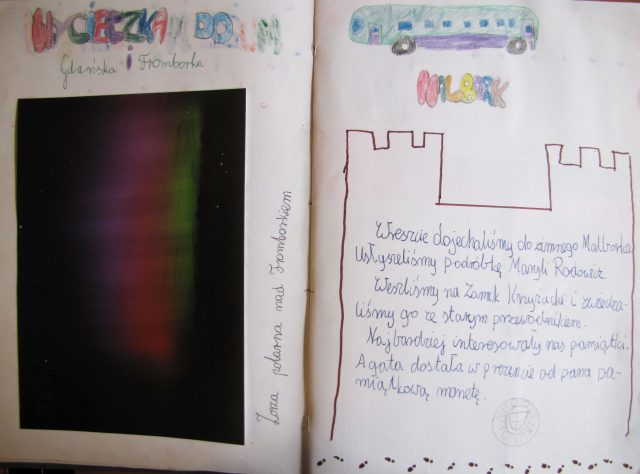 WYCIECZKA DO
Gdańska i Fromborka
Zorza polarna nad Fromborkiem
MALBORK
Wreszcie dojechaliśmy do zimnego Malborka
usłyszeliśmy podróbkę Maryli Rodowicz.
Weszliśmy na Zamek Krzyżacki i zwiedza-
liśmy go ze starym przewodnikiem.
Najbardziej interesowały nas pamiątki.
Agata dostała w prezencie od pana pa-
miątkową monetę.